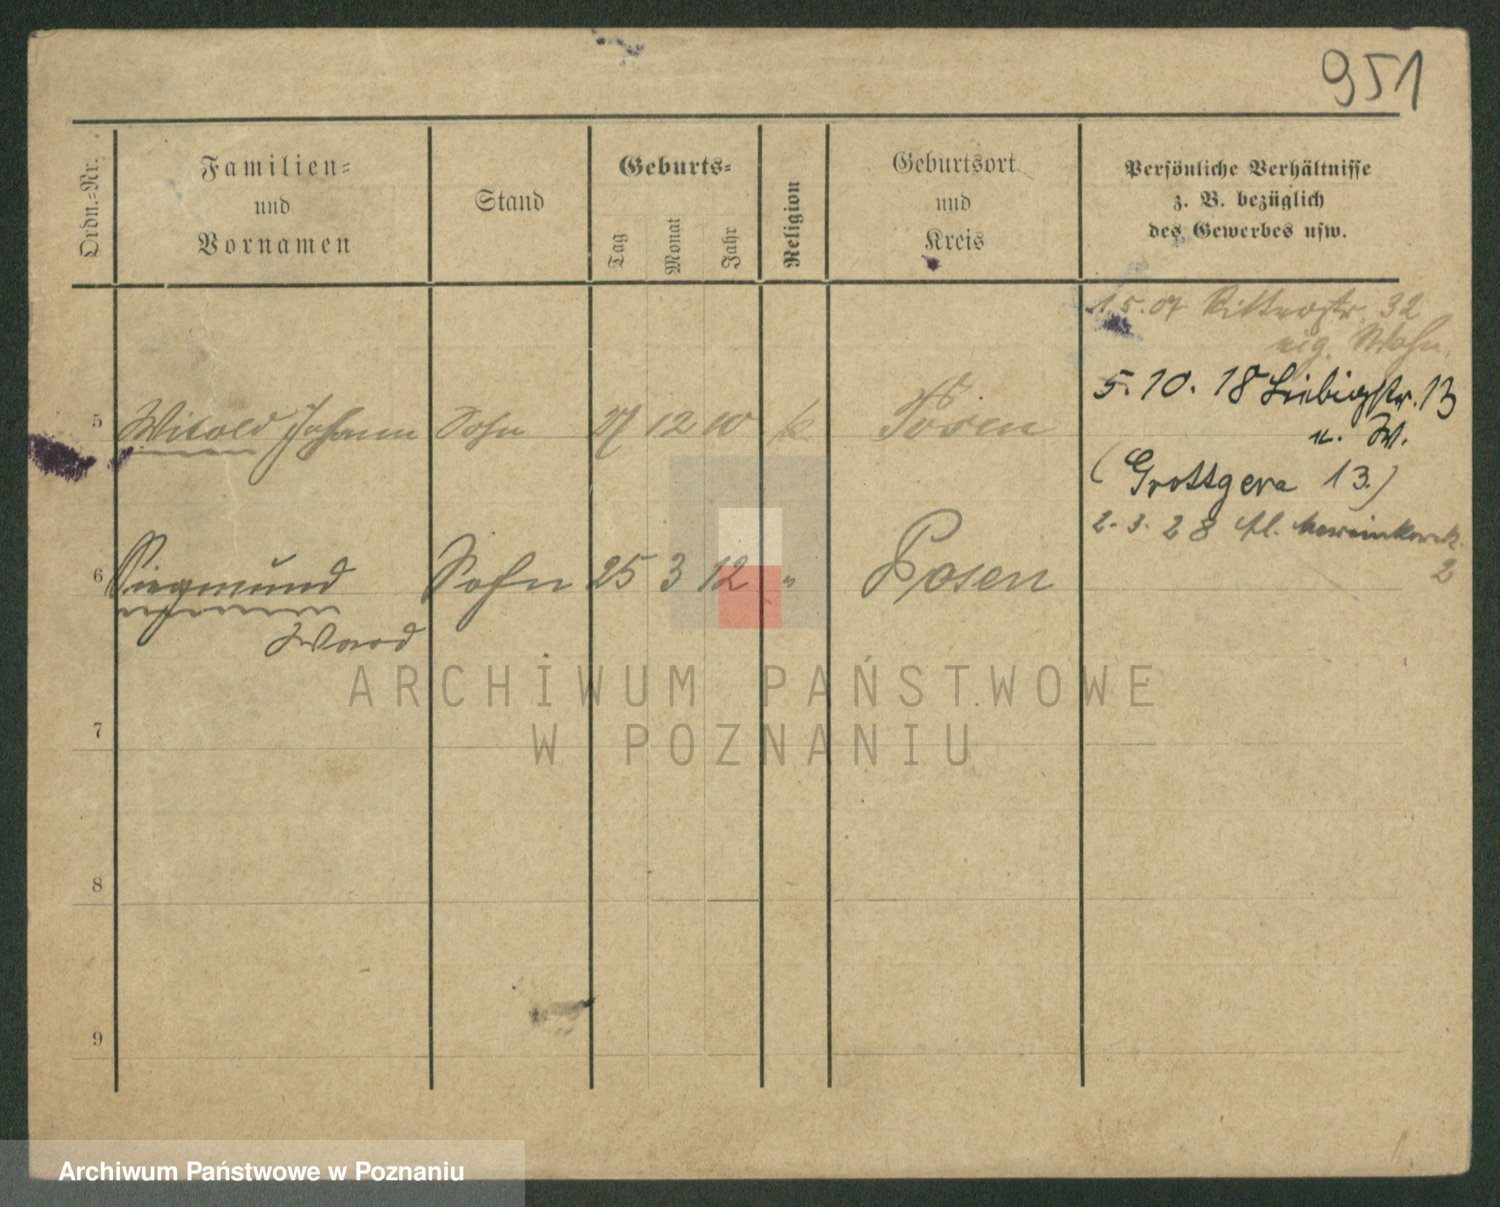 951
Ordn.-Nr.
Familien-
und
Vornamen
Stand
Geburts-
Tag
Monat
Jahr
Religion
Geburtsort
und
Kreis
Persönliche Verhältnisse
z. B. bezüglich
des Gewerbes usw.
1.5.07 Ritterstr. 32
eig. Wohn.
5. 10. 18 Liebigstr. 13
u. W.
(Grottgera 13.)
2. 3. 28 Al. Marcinkowsk.
2
5 Witold Johann Sohn 27 12 10 k Posen
6 Siegmund Sohn 25 3 12 " Posen
7
8
9
ARCHIWUM PAŃSTWOWE
W POZNANIU
Archiwum Państwowe w Poznaniu